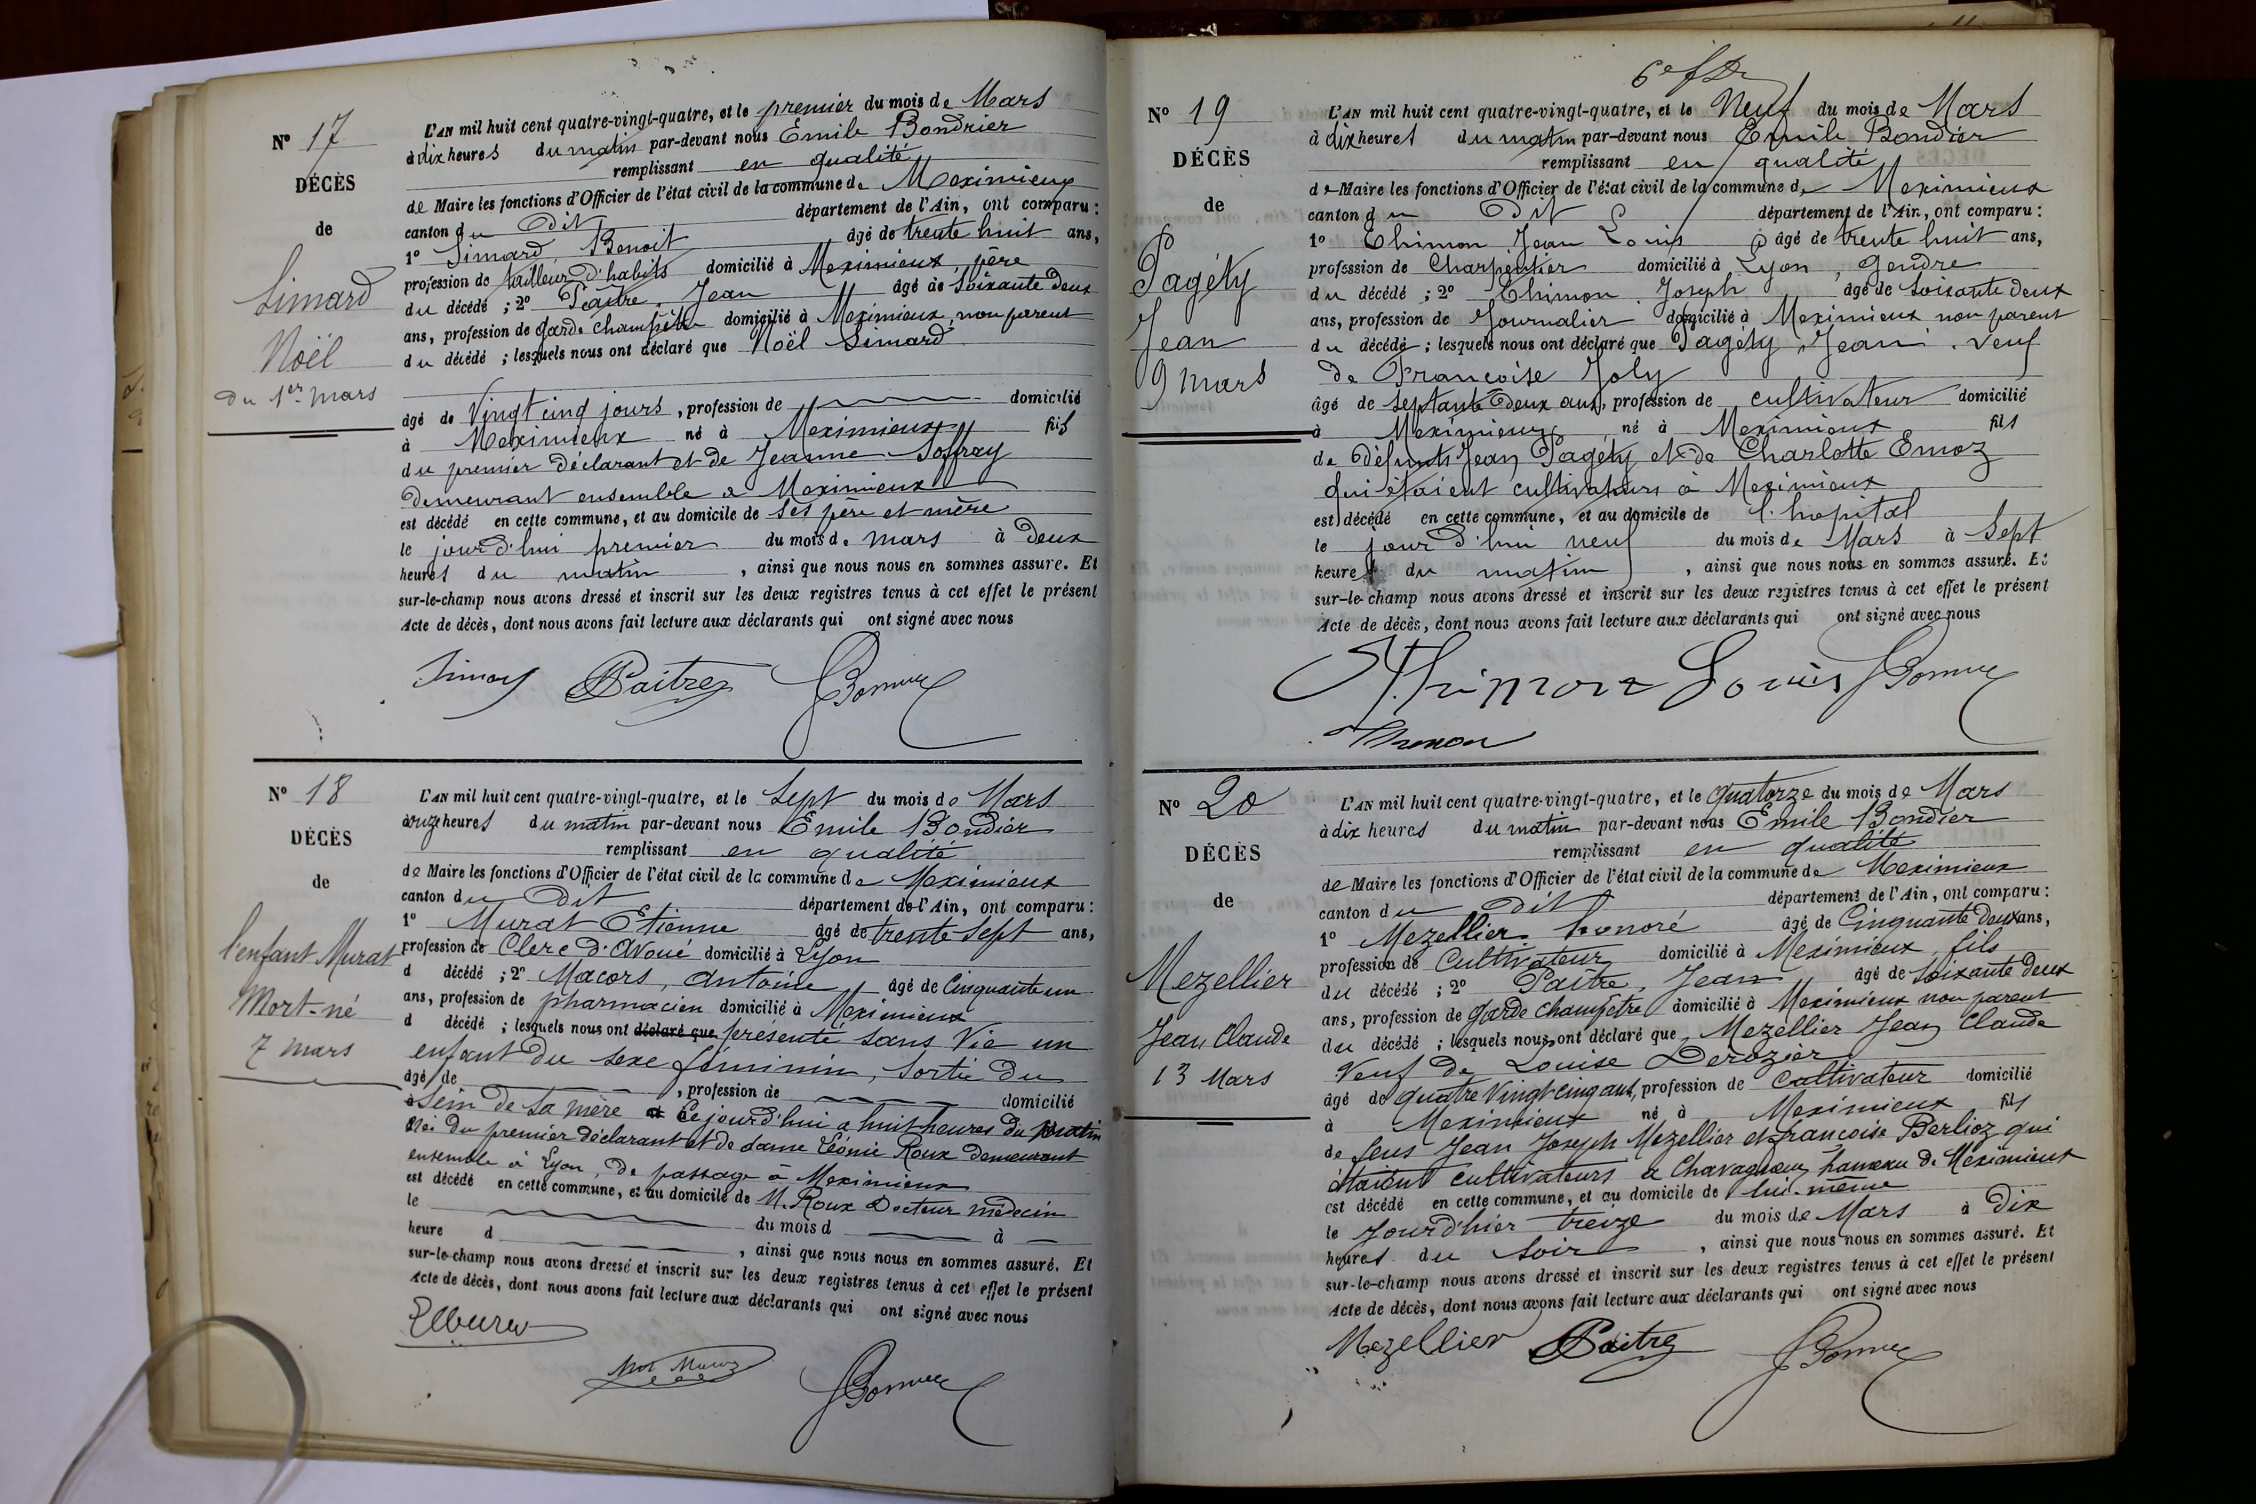 Nº 17
DÉCÈS
de
Simard
Noël
du 1er mars
L'AN mil huit cent quatre-vingt-quatre, et le premier du mois de Mars
à dix heures du matin par-devant nous Emile Bondrier
remplissant en qualité
de Maire les fonctions d'Officier de l'état civil de la commune de Meximieux
canton du Dit département de l'Ain, ont comparu :
1º Simard, Benoit âgé de trente huit ans,
profession de tailleur d'habits domicilié à Meximieux, père
du décédé ; 2º Paitre, Jean âgé de Soixante deux
ans, profession de garde champêtre domicilié à Meximieux non parent
du décédé ; lesquels nous ont déclaré que Noël Simard
âgé de Vingt cinq jours, profession de domicilié
à Meximieux né à Meximieux fils
du premier déclarant et de Jeanne Soffray
demeurant ensemble à Meximieux
est décédé en cette commune, et au domicile de ses père et mère
le jour d'hui premier du mois de mars à Deux
heures du matin, ainsi que nous nous en sommes assuré. Et
sur-le-champ nous avons dressé et inscrit sur les deux registres tenus à cet effet le présent
Acte de décès, dont nous avons fait lecture aux déclarants qui ont signé avec nous
Paitre
Nº 18
DÉCÈS
de
l'enfant Murat
Mort-né
7 mars
L'AN mil huit cent quatre-vingt-quatre, et le Sept du mois de Mars
à onze heures du matin par-devant nous Emile Bondier
remplissant en qualité
de Maire les fonctions d'Officier de l'état civil de la commune de Meximieux
canton du Dit département de l'Ain, ont comparu :
1º Murat Etienne âgé de trente Sept ans,
profession de Clerc d'Avoué domicilié à Lyon
d décédé ; 2º Macors, Antoine âgé de Cinquante un
ans, profession de pharmacien domicilié à Meximieux
d décédé ; lesquels nous ont déclaré que présenté sans Vie un
enfant du sexe féminin, sortie du
âgé de , profession de domicilié
à sein de sa mère ce jourd'hui à huit heures du matin
née du premier déclarant et de dame Léonie Roux demeurant
ensemble à Lyon, de passage à Meximieux
est décédé en cette commune, et au domicile de M. Roux Docteur médecin
le du mois d à
heure d , ainsi que nous nous en sommes assuré. Et
sur-le-champ nous avons dressé et inscrit sur les deux registres tenus à cet effet le présent
Acte de décès, dont nous avons fait lecture aux déclarants qui ont signé avec nous
Nº 19
DÉCÈS
de
Pagéty
Jean
9 mars
L'AN mil huit cent quatre-vingt-quatre, et le Neuf du mois de Mars
à dix heures du matin par-devant nous Emile Bondier
remplissant en qualité
de Maire les fonctions d'Officier de l'état civil de la commune de Meximieux
canton du Dit département de l'Ain, ont comparu :
1º Thimon Jean Louis âgé de trente huit ans,
profession de Charpentier domicilié à Lyon, gendre
du décédé ; 2º Thimon Joseph âgé de Soixante deux
ans, profession de Journalier domicilié à Meximieux non parent
du décédé ; lesquels nous ont déclaré que Pagéty, Jean, veuf
de Françoise Joly
âgé de septante deux ans, profession de cultivateur domicilié
à Meximieux, né à Meximieux fils
de défunts Jean Pagéty et de Charlotte Emoz
qui étaient cultivateurs à Meximieux
est décédé en cette commune, et au domicile de l'hopital
le jour d'hui neuf du mois de Mars à Sept
heures du matin, ainsi que nous nous en sommes assuré. Et
sur-le-champ nous avons dressé et inscrit sur les deux registres tenus à cet effet le présent
Acte de décès, dont nous avons fait lecture aux déclarants qui ont signé avec nous
Thimon Louis
Thimon
Nº 20
DÉCÈS
de
Mezellier
Jean Claude
13 Mars
L'AN mil huit cent quatre-vingt-quatre, et le quatorze du mois de Mars
à dix heures du matin par-devant nous Emile Bondier
remplissant en qualité
de Maire les fonctions d'Officier de l'état civil de la commune de Meximieux
canton du Dit département de l'Ain, ont comparu :
1º Mezellier honoré âgé de Cinquante Deux ans,
profession de Cultivateur domicilié à Meximieux, fils
du décédé ; 2º Paitre, Jean âgé de Soixante deux
ans, profession de garde champêtre domicilié à Meximieux non parent
du décédé ; lesquels nous ont déclaré que Mezellier Jean Claude
Veuf de Louise Derozier
âgé de quatre Vingt-cinq ans, profession de Cultivateur domicilié
à Meximieux né à Meximieux fils
de feus Jean Joseph Mezellier et françoise Berlioz qui
étaient cultivateurs à hameau de Meximieux
est décédé en cette commune, et au domicile de lui-même
le Jour d'hier treize du mois de Mars à Dix
heures du soir, ainsi que nous nous en sommes assuré. Et
sur-le-champ nous avons dressé et inscrit sur les deux registres tenus à cet effet le présent
Acte de décès, dont nous avons fait lecture aux déclarants qui ont signé avec nous
Mezellier Paitre